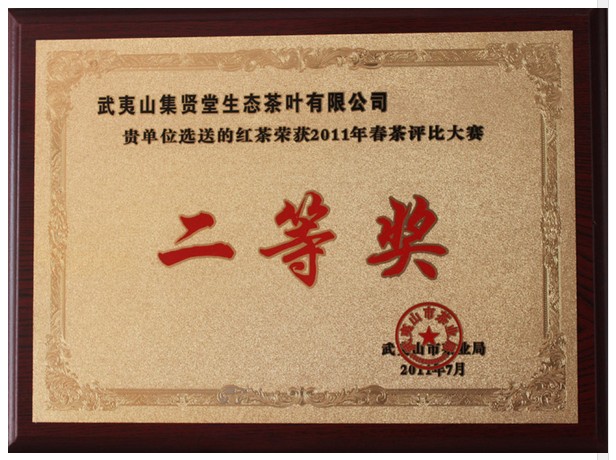 武夷山集贤堂生态茶叶有限公司
贵单位选送的红茶荣获2011年春茶评比大赛
二等奖
武夷山市茶业局
武夷山市茶业局
2011年7月